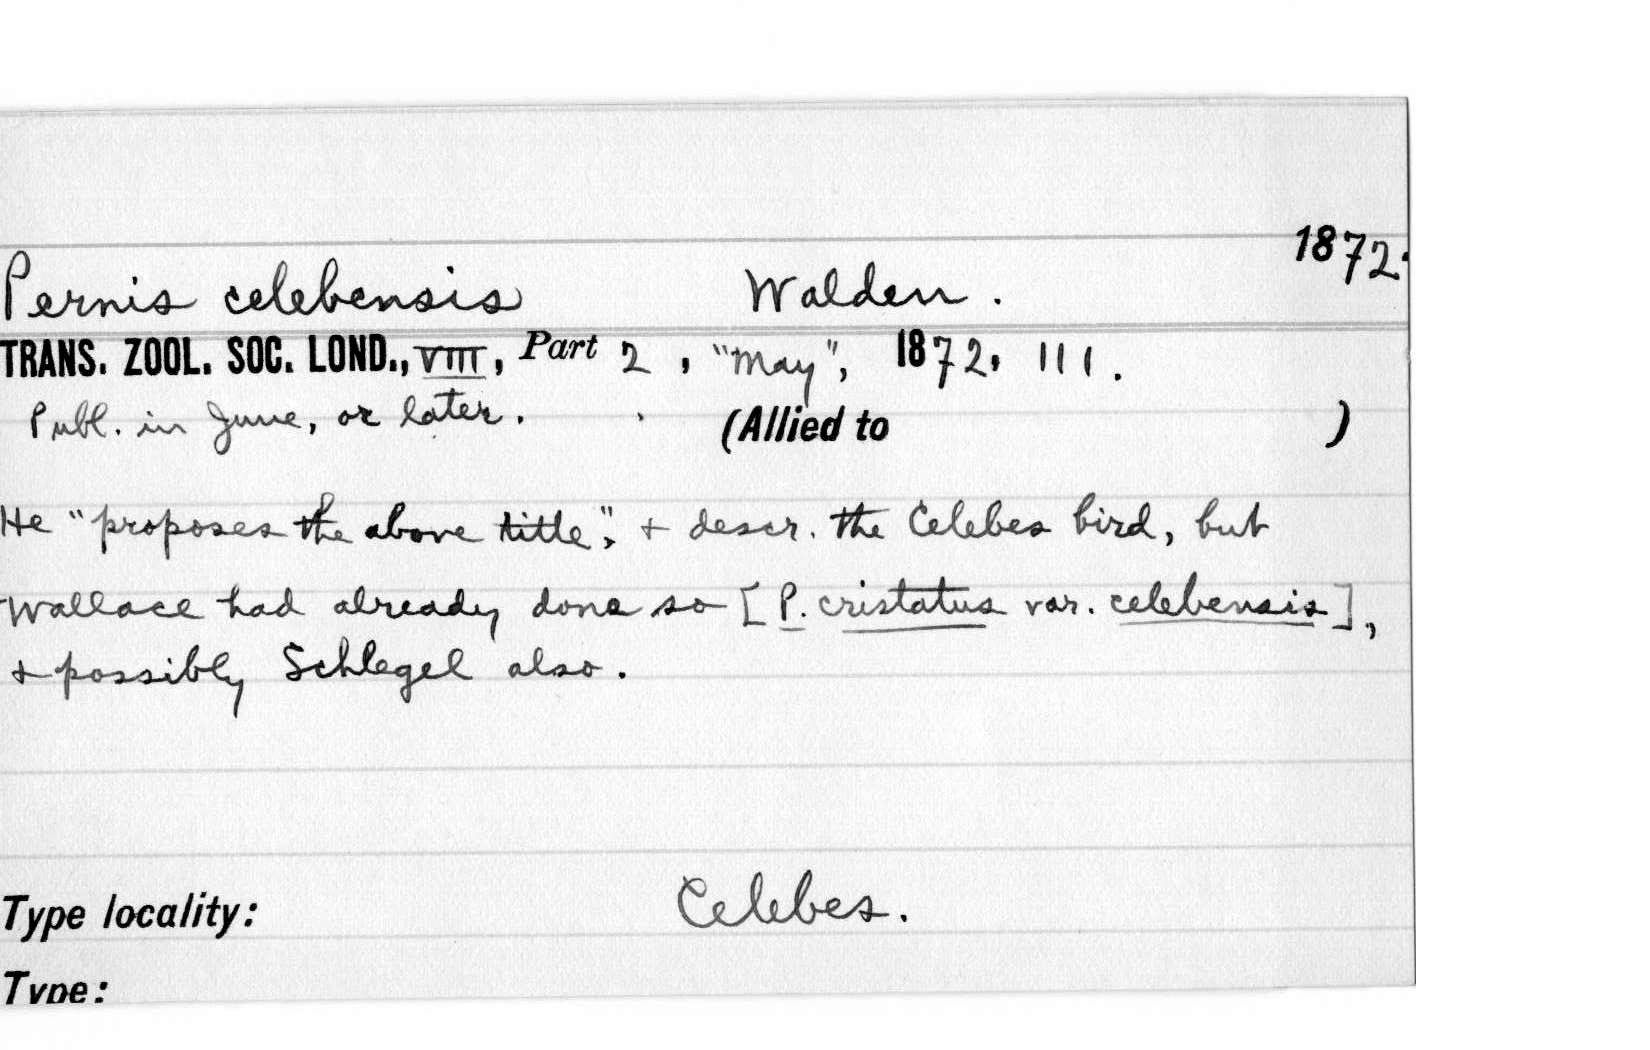 1872.
Pernis celebensis Walden.
TRANS. ZOOL. SOC. LOND., VIII, Part 2, "May", 1872, 111.
Publ. in June, or later. (Allied to )
He "proposes the above title", + descr. the Celebes bird, but
Wallace had already done so [P. cristatus var. celebensis],
+ possibly Schlegel also.
Type locality: Celebes.
Type: